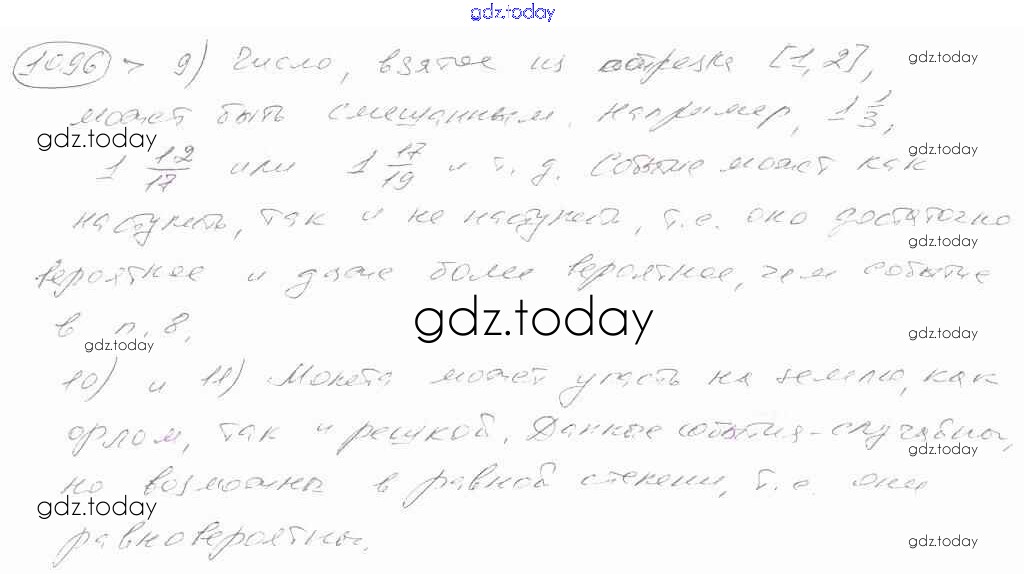 gdz.today
1096 > 9) Число, взятое из отрезка [1,2],
gdz.today
может быть смешанным. Например, 1 1/3,
gdz.today
1 12/17 или 1 17/19 и т. д. Событие может как
gdz.today
наступить, так и не наступить, т.е. оно достаточно
gdz.today
вероятное и даже более вероятное, чем событие
gdz.today
в п. 8.
gdz.today
gdz.today
10) и 11) Монета может упасть на землю, как
орлом, так и решкой. Данные события - случайны,
gdz.today
но возможны в равной степени, т.е. они
gdz.today
равновероятны.
gdz.today